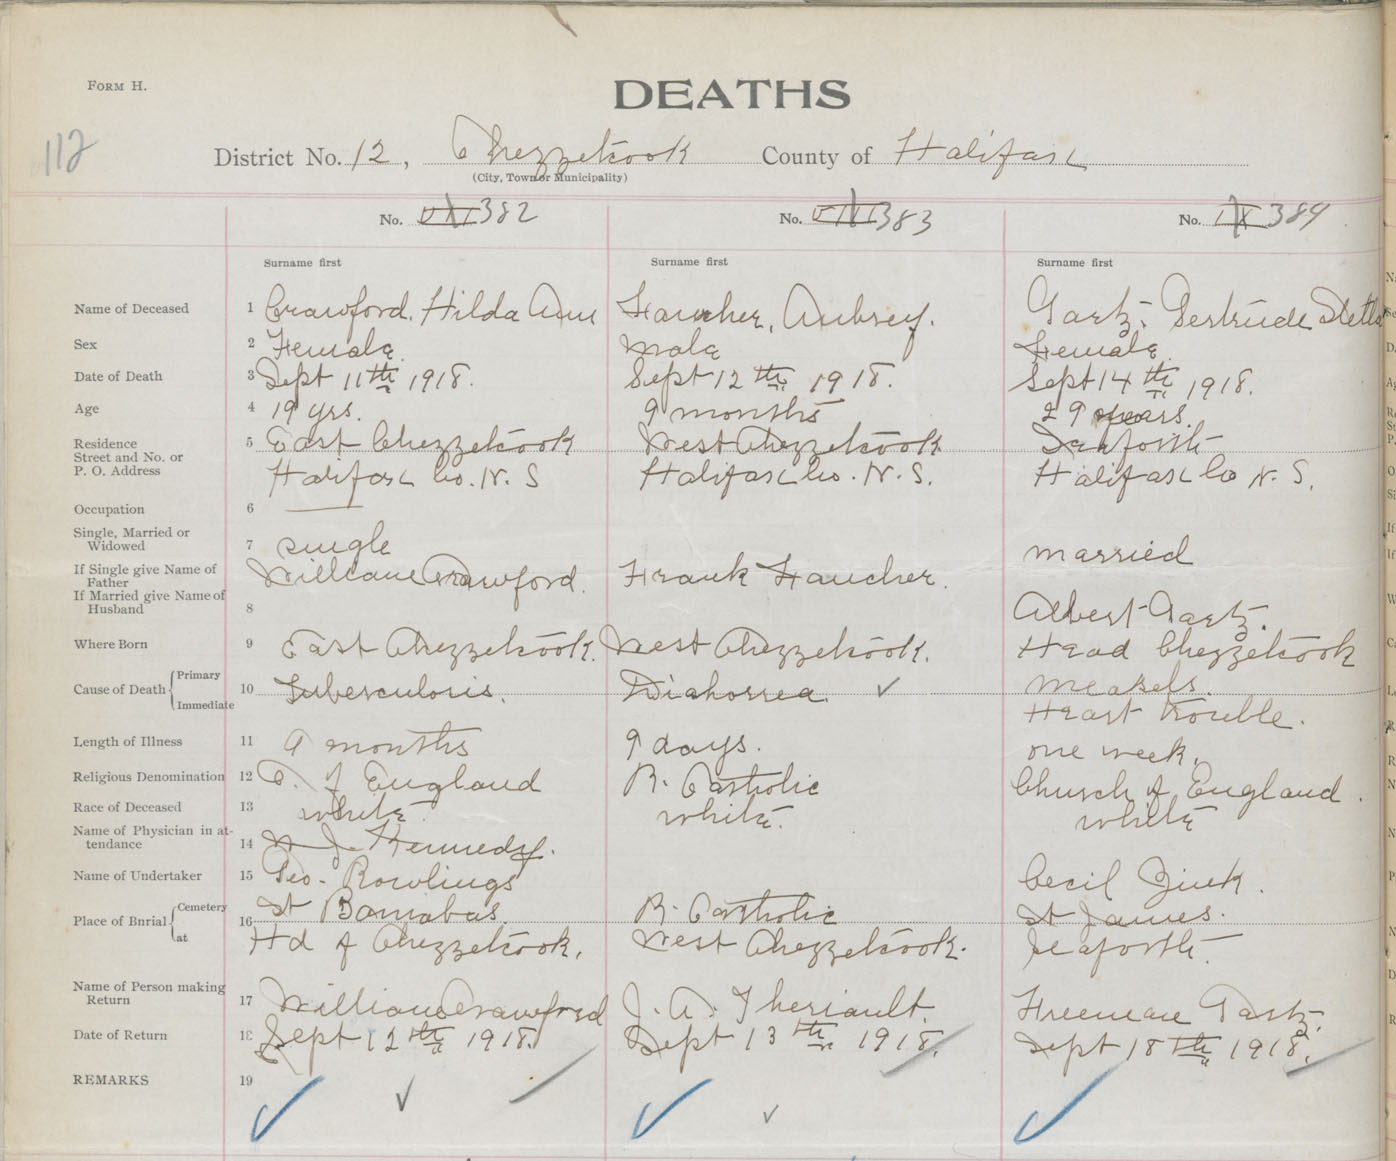 FORM H.
DEATHS
112
District No. 12, Chezzetcook County of Halifax
(City, Town or Municipality)
No. VII 382 No. VIII 383 No. IX 384
Surname first Surname first Surname first
Name of Deceased 1 Crawford. Hilda Ann Faucher, Aubrey. Gaetz, Gertrude Stella
Sex 2 Female. Male Female.
Date of Death 3 Sept 11th 1918. Sept 12th 1918. Sept 14th 1918.
Age 4 19 yrs. 9 months 29 years.
Residence 5 East Chezzetcook West Chezzetcook Seaforth
Street and No. or
P. O. Address Halifax Co. N. S Halifax Co. N. S. Halifax Co N. S.
Occupation 6
Single, Married or
Widowed 7 single married
If Single give Name of
Father William Crawford. Frank Faucher.
If Married give Name of
Husband 8 Albert Gaetz.
Where Born 9 East Chezzetcook. West Chezzetcook. Head Chezzetcook
Cause of Death Primary 10 Tuberculosis. Diahorrea. Measels.
Immediate Heart trouble.
Length of Illness 11 9 months 9 days. one week.
Religious Denomination 12 C. of England R. Catholic Church of England.
Race of Deceased 13 white. white. white
Name of Physician in at-
tendance 14 J. Kennedy.
Name of Undertaker 15 Geo. Rowlings Cecil Zink.
Place of Burial Cemetery 16 St Barnabas. R. Catholic St James.
at Hd of Chezzetcook. West Chezzetcook. Seaforth.
Name of Person making
Return 17 William Crawford J. A. Theriault. Freeman Gaetz.
Date of Return 18 Sept 12th 1918. Sept 13th 1918. Sept 18th 1918.
REMARKS 19